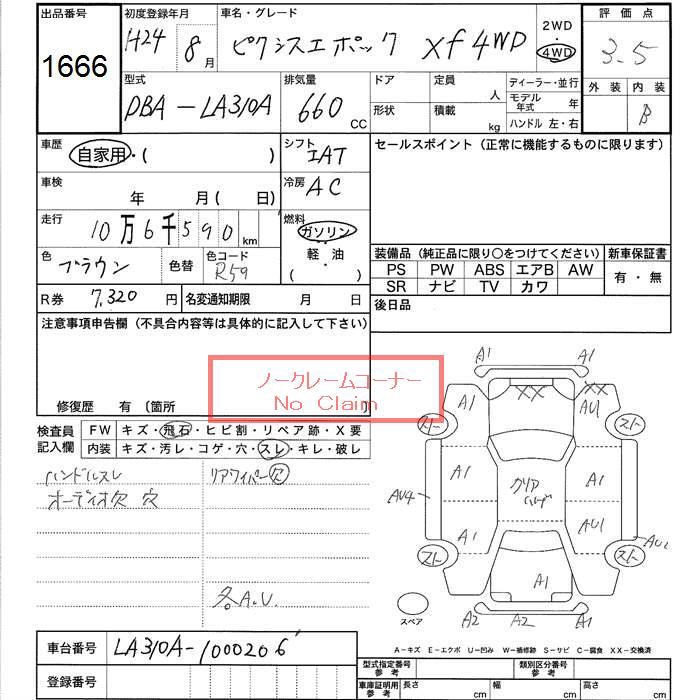 出品番号 初度登録年月 車名・グレード 2WD 評価点
1666 H24 8月 ピクシスエポック Xf 4WD 4WD 3.5
型式 排気量 ドア 定員 人 ディーラー・並行 外装 内装
DBA-LA310A 660 CC 形状 積載 kg モデル年式 年 B
ハンドル 左・右
車歴 自家用・( ) シフト IAT セールスポイント(正常に機能するものに限ります)
車検 年 月( 日) 冷房 AC
走行 10万6千590km 燃料 ガソリン
軽・油
( )
色 ブラウン 色替 色コード R59
装備品(純正品に限り○をつけてください) 新車保証書
PS PW ABS エアB AW 有・無
SR ナビ TV カワ
R券 7,320円 名変通知期限 月 日 後日品
注意事項申告欄(不具合内容等は具体的に記入して下さい)
ノークレームコーナー
No Claim
修復歴 有〔箇所
検査員記入欄 FW キズ・飛石・ヒビ割・リペア跡・X要
内装 キズ・汚レ・コゲ・穴・スレ・キレ・破レ
ハンドルスレ リアワイパー欠
オーディオ欠 穴
各A.U.
A1 A1
A1 XX XX AU1
スト スト
A1 クリアハゲ A1
AU4
A1 AU1
スト スト
A1
A2 A2 A1
スペア
A-キズ E-エクボ U-凹み W-補修跡 S-サビ C-腐食 XX-交換済
車台番号 LA310A-1000206
登録番号
型式指定番号 参考 類別区分番号 参考
車庫証明用 参考 長さ cm 幅 cm 高さ cm